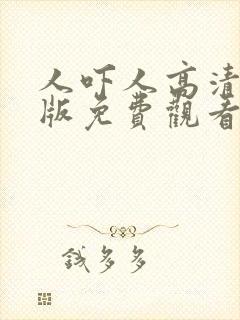 人吓人高清
版免費觀看
钱多多